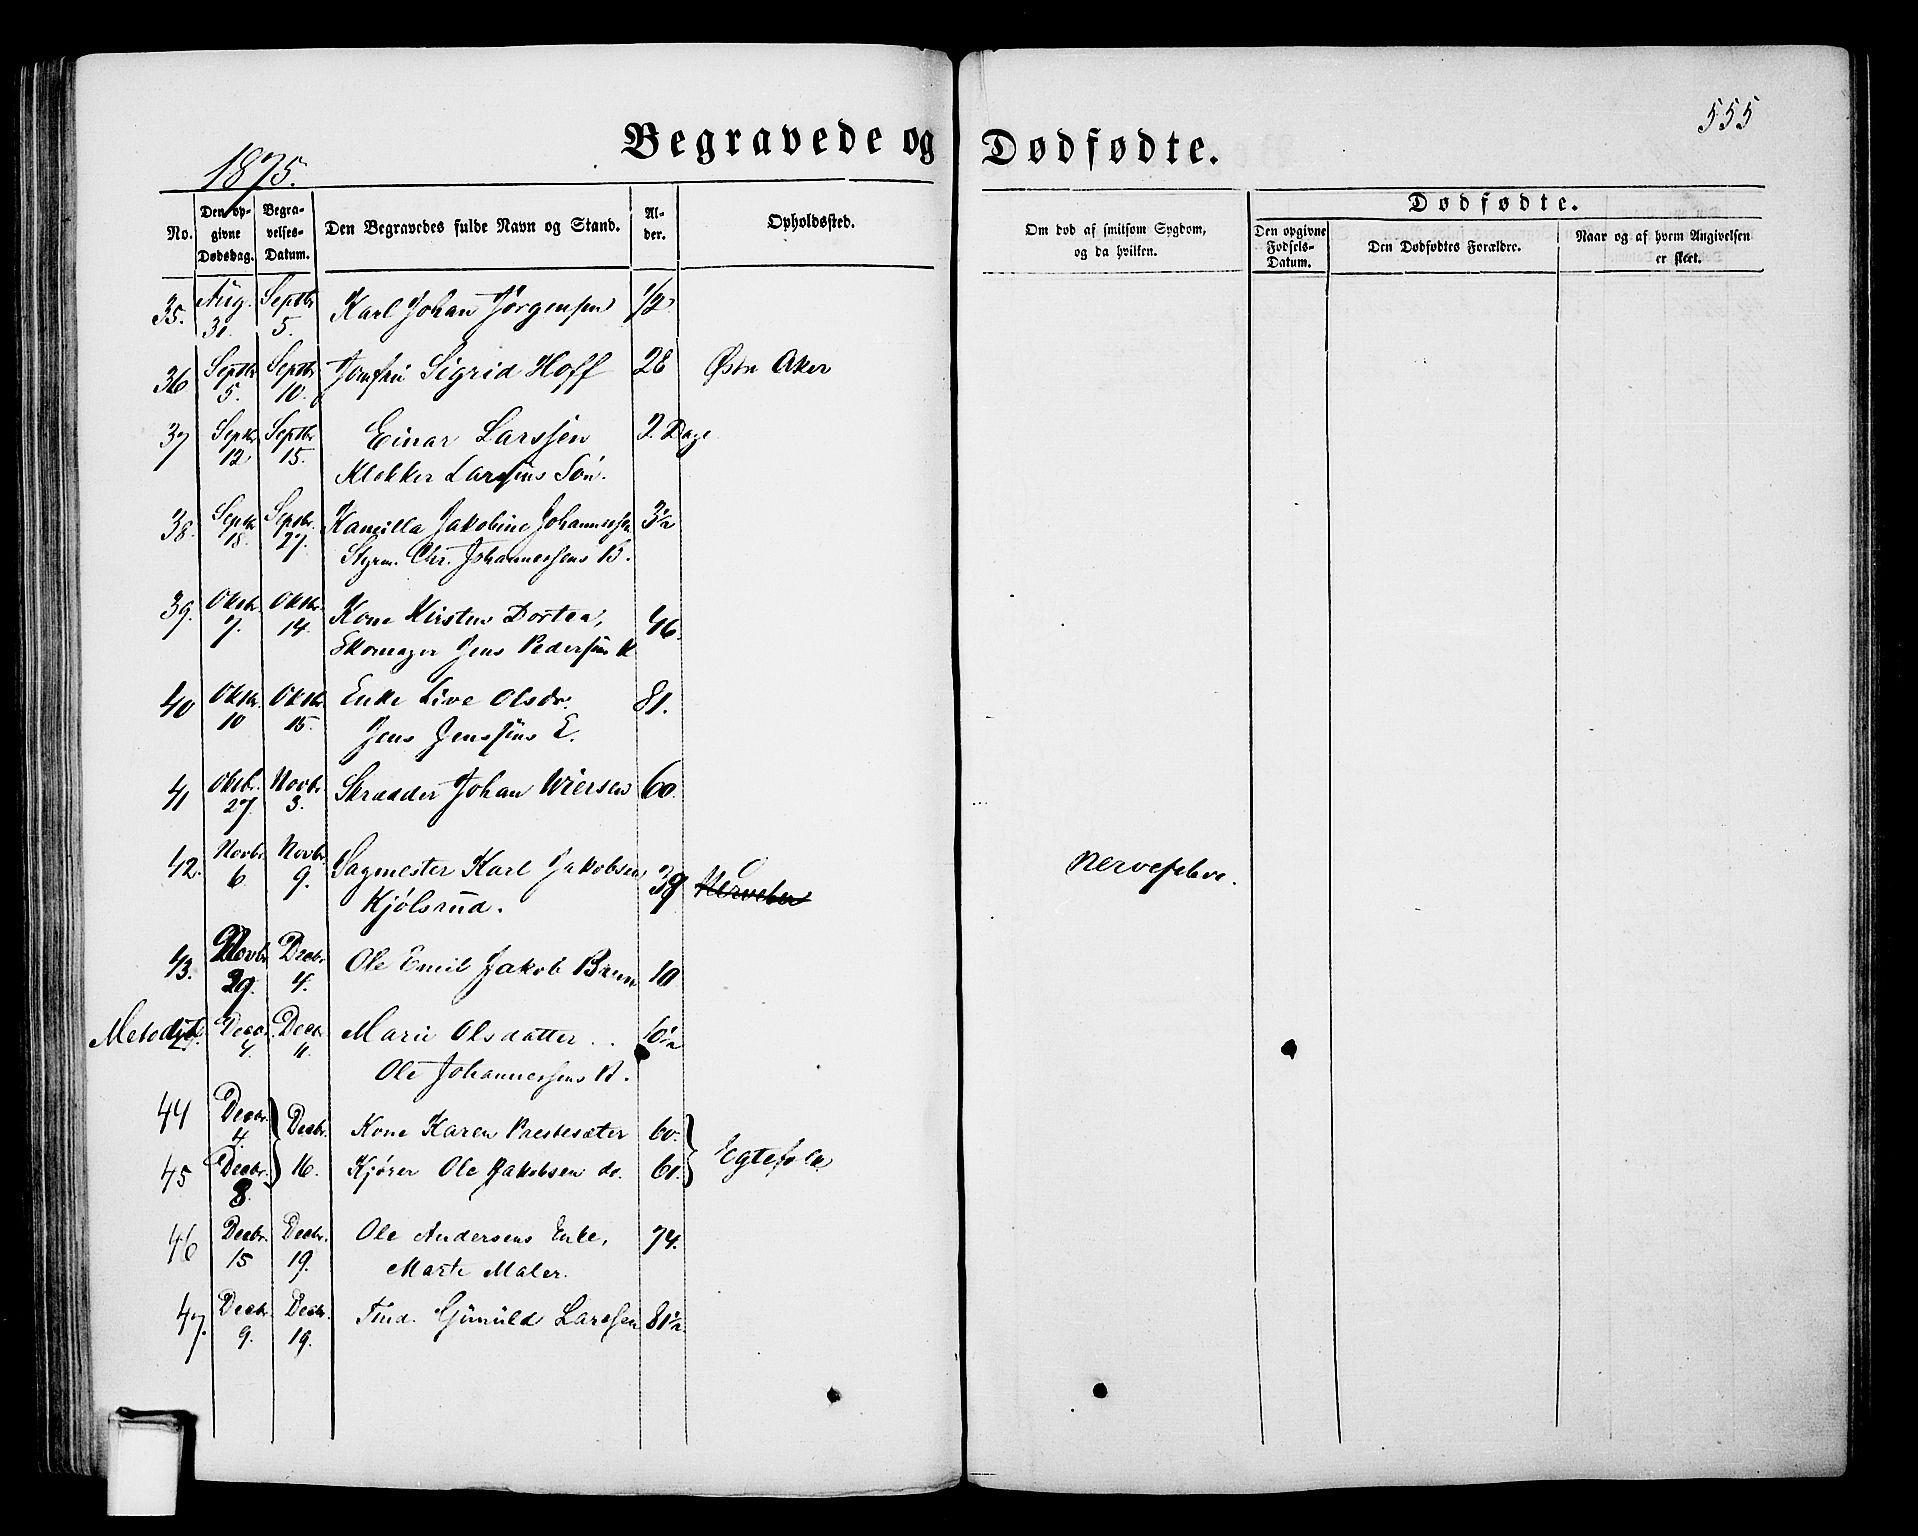 555
Begravede og Dødfødte.
1875.
No.
Den op-
givne
Dødsdag.
Begra-
velses-
Datum.
Den Begravedes fulde Navn og Stand.
Al-
der.
Opholdssted.
Om død af smitsom Sygdom,
og da hvilken.
Dødfødte.
Den opgivne
Fødsels-
Datum.
Den Dødfødtes Forældre.
Naar og af hvem Angivelsen
er skeet.
35. Aug. 31. Septbr 5. Karl Johan Jørgensen 1/2
36 Septbr 5. Septbr 10. Jomfru Sigrid Hoff 28 Østr Aker
37 Septbr 12 Septbr 15. Einar Larssen 2 Dage
Klokker Larssens Søn.
38. Septbr 18. Septbr. 27. Kamilla Jakobine Johannessen 3 1/2
Styrm. Chr. Johannessens B.
39. Oktbr. 7. Oktbr. 14. Kone Kirsten Dortea, 46.
Skomager Jens Pedersens K
40 Oktbr. 10 Oktbr. 15. Enke Live Olsdr. 81.
Jens Jenssens E.
41 Oktbr. 27. Novbr. 3. Skrædder Johan Wiersen 60.
42. Novbr. 6. Novbr. 9. Sagmester Karl Jakobsen 39 Nervefeber.
Kjølsrud.
43. Novbr. 29. Decbr. 4. Ole Emil Jakob Brun 10
Metodist. Decbr. 4. Decbr. 11. Marie Olsdatter 6 1/2
Ole Johannessens B.
44 Decbr. 4. Decbr. 16. Kone Karen Prestesæter 60. Egtefolk
45 Decbr. 8. Kjører Ole Jakobsen do. 60.
46 Decbr. 15 Decbr. 19. Ole Andersens Enke, 74.
Marte Maler.
47. Decbr. 9. Decbr. 19. Gunuld Larssen 81 1/2